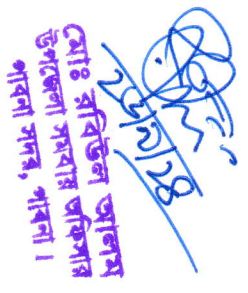 ২৫/২/২৪
মোঃ রবিউল আলম
উপজেলা সমবায় অফিসার
পাবনা সদর, পাবনা।